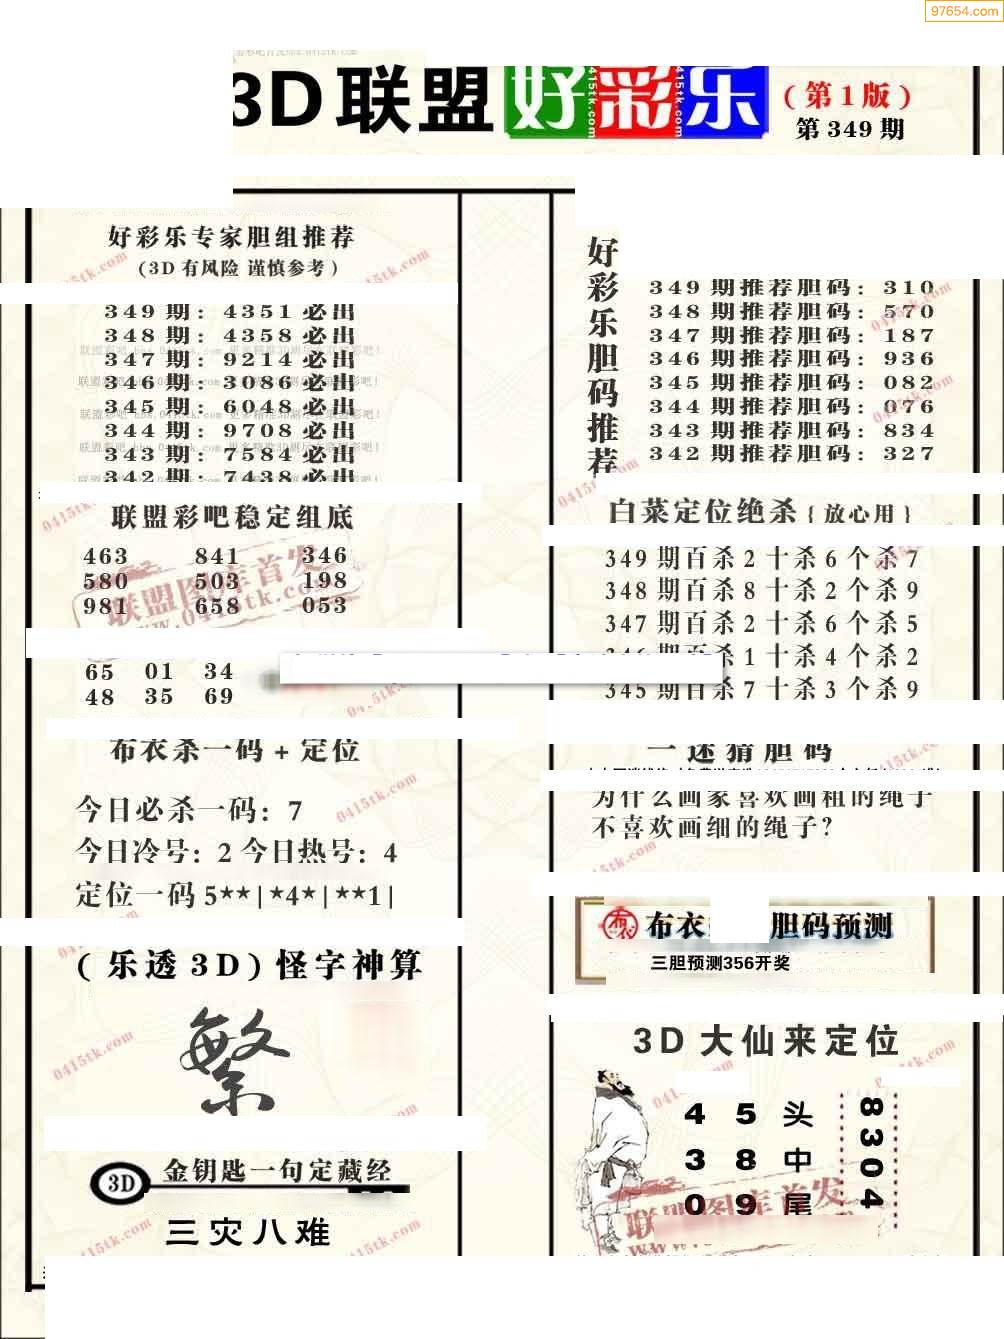 97654.com
3D联盟好彩乐
(第1版)
第349期
好彩乐专家胆组推荐
(3D有风险 谨慎参考)
349期: 4351必出
348期: 4358必出
347期: 9214必出
346期: 3086必出
345期: 6048必出
344期: 9708必出
343期: 7584必出
342期: 7438必出
联盟彩吧稳定组底
463 841 346
580 503 198
981 658 053
65 01 34
48 35 69
布衣杀一码+定位
今日必杀一码: 7
今日冷号: 2 今日热号: 4
定位一码 5**|*4*|**1|
(乐透3D)怪字神算
繁
3D 金钥匙一句定藏经
三灾八难
好彩乐胆码推荐
349期推荐胆码: 310
348期推荐胆码: 570
347期推荐胆码: 187
346期推荐胆码: 936
345期推荐胆码: 082
344期推荐胆码: 076
343期推荐胆码: 834
342期推荐胆码: 327
白菜定位绝杀{放心用}
349期百杀2十杀6个杀7
348期百杀8十杀2个杀9
347期百杀2十杀6个杀5
346期百杀1十杀4个杀2
345期百杀7十杀3个杀9
一迷猜胆码
为什么画家喜欢画粗的绳子
不喜欢画细的绳子?
布衣 胆码预测
三胆预测356开奖
3D大仙来定位
4 5 头
3 8 中
0 9 尾
8304
联盟图库首发
0415tk.com